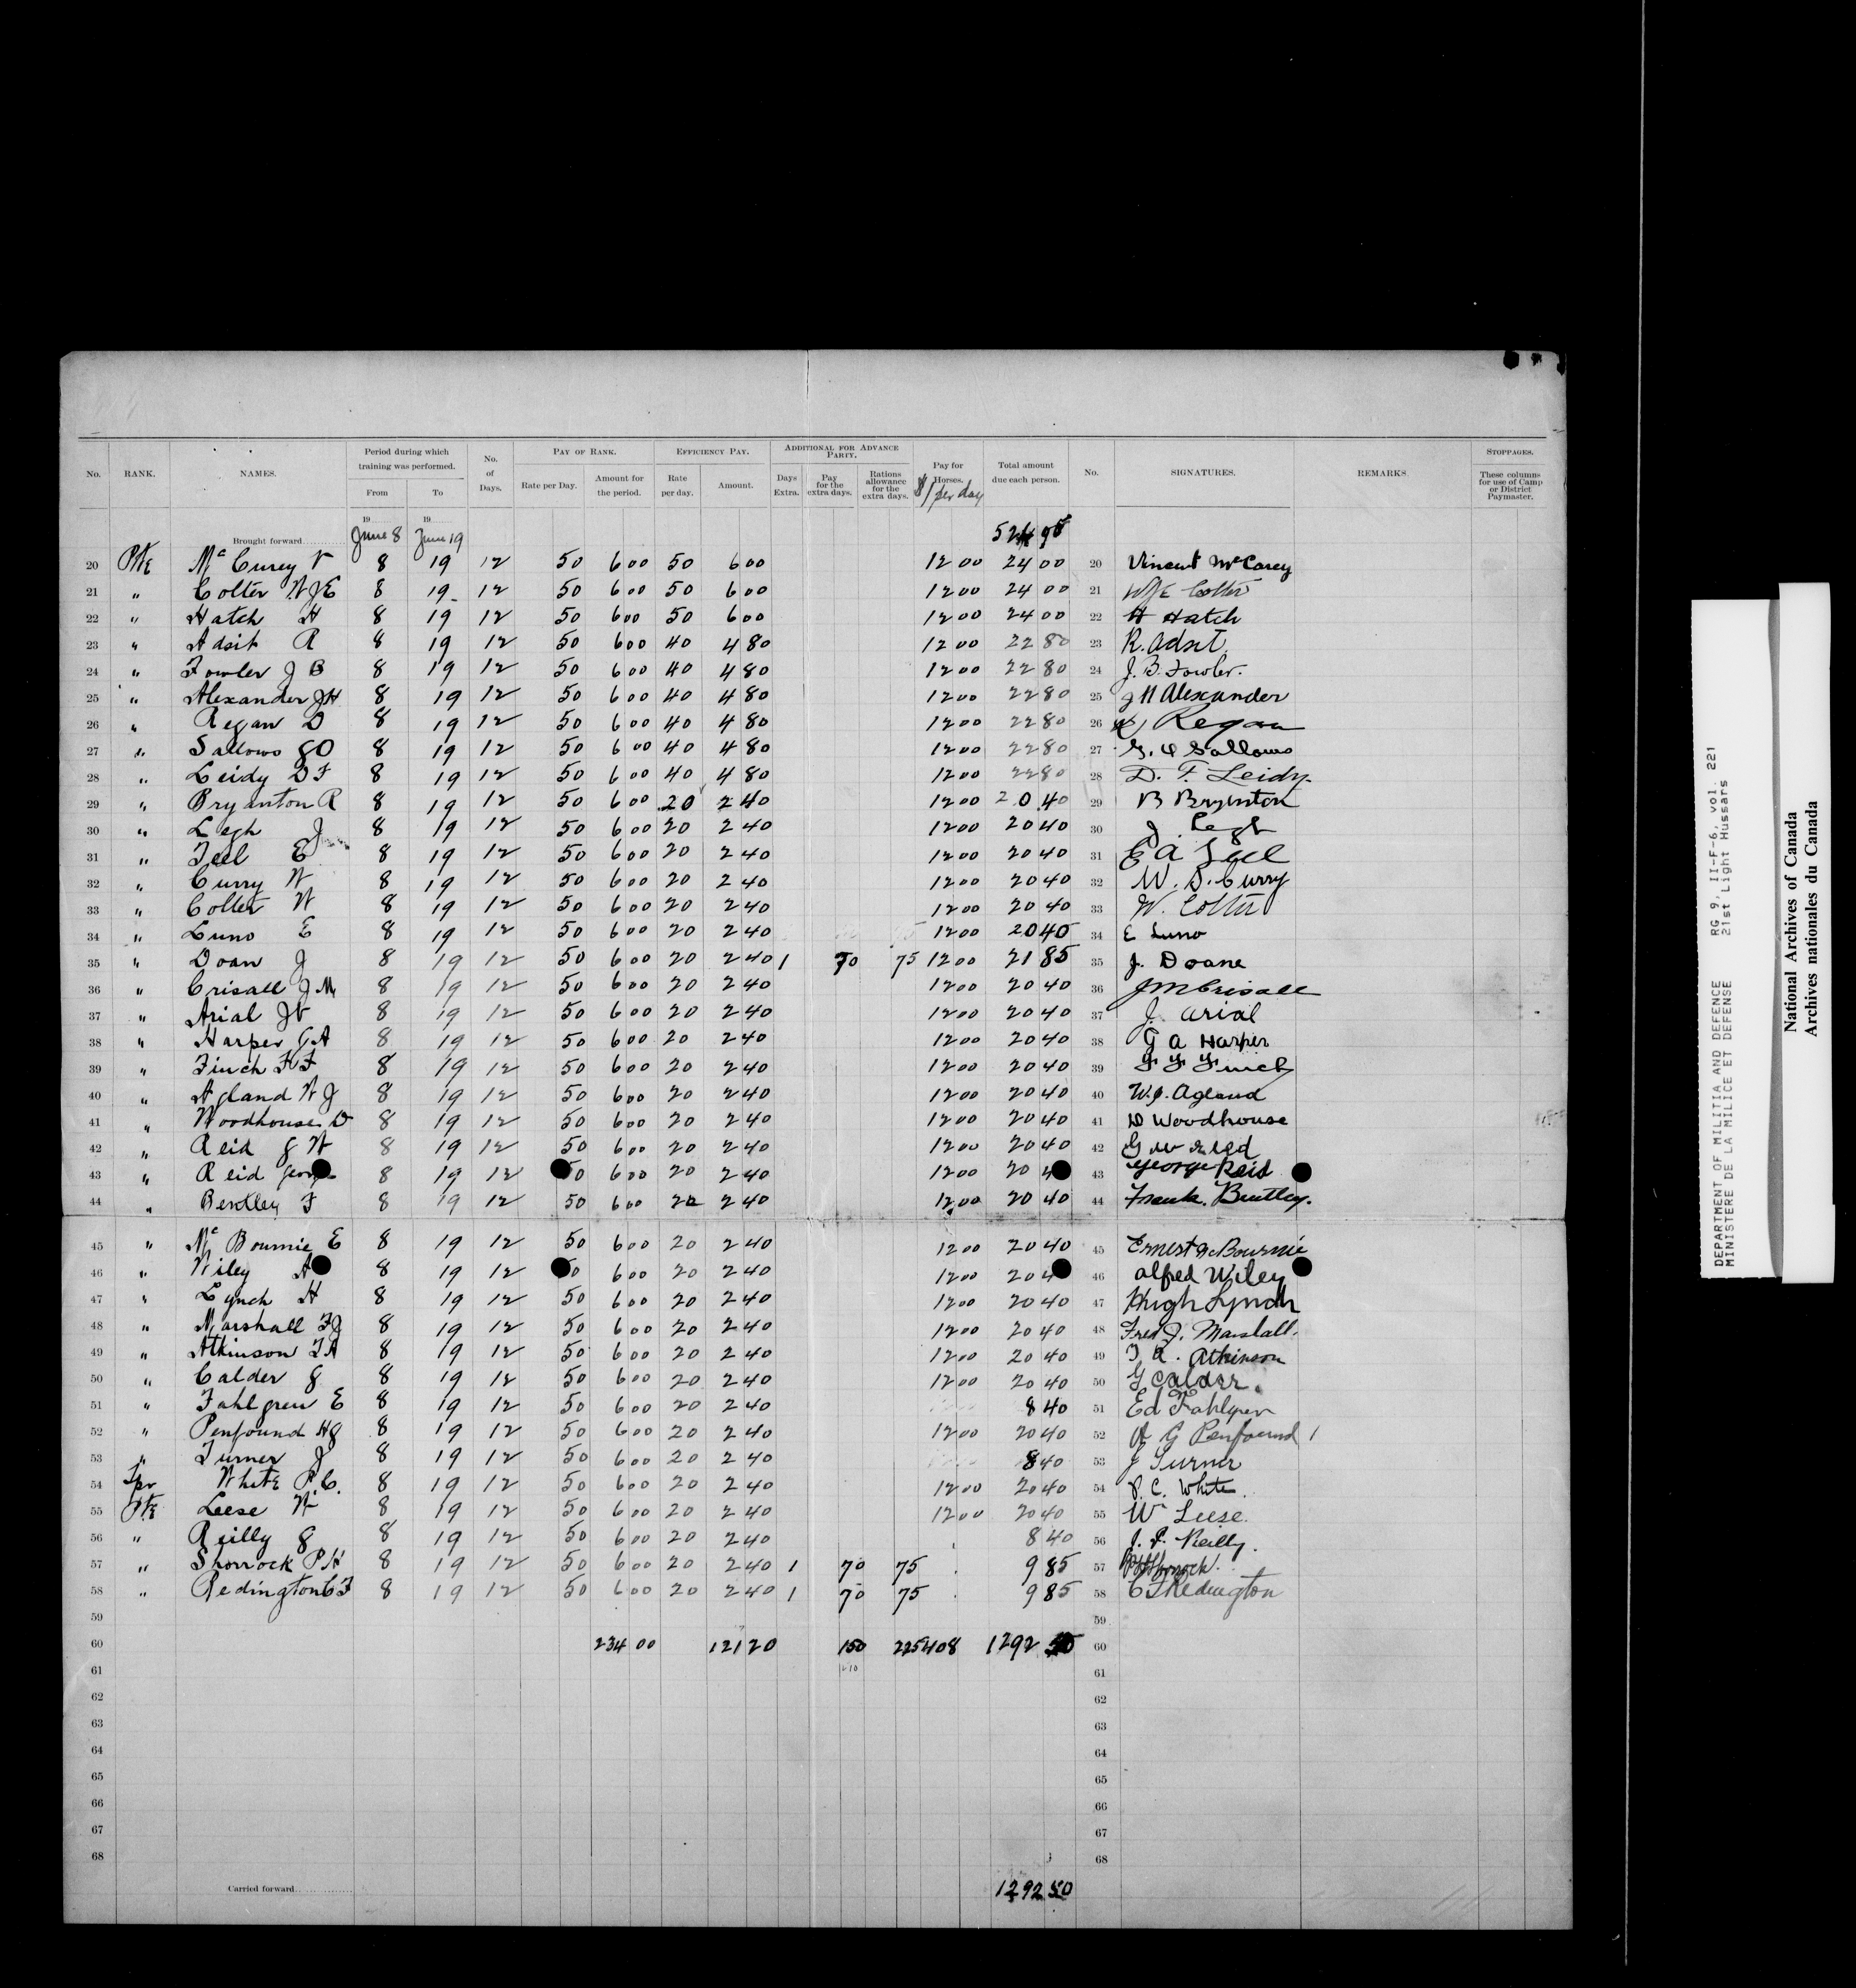 No. RANK. NAMES. Period during which training was performed. From To No. of Days. PAY OF RANK. Rate per Day. Amount for the period. EFFICIENCY PAY. Rate per day. Amount. ADDITIONAL FOR ADVANCE PARTY. Days Extra. Pay for the extra days. Rations allowance for the extra days. Pay for Horses. $1 per day Total amount due each person. No. SIGNATURES. REMARKS. STOPPAGES. These columns for use of Camp or District Paymaster.
19 19
Brought forward June 8 June 19
20 Pte Mc Curey V 8 19 12 50 6 00 50 6 00 12 00 24 00 20 Vincent McCarey
21 " Colter W J E 8 19 12 50 6 00 50 6 00 12 00 24 00 21 WJE Colter
22 " Hatch H 8 19 12 50 6 00 50 6 00 12 00 24 00 22 H Hatch
23 " Adsit R 8 19 12 50 6 00 40 4 80 12 00 22 80 23 R. Adsit
24 " Fowler J B 8 19 12 50 6 00 40 4 80 12 00 22 80 24 J. B. Fowler.
25 " Alexander J H 8 19 12 50 6 00 40 4 80 12 00 22 80 25 J H Alexander
26 " Regan D 8 19 12 50 6 00 40 4 80 12 00 22 80 26 Regan
27 " Sallows G O 8 19 12 50 6 00 40 4 80 12 00 22 80 27 G. O Sallows
28 " Leidy D F 8 19 12 50 6 00 40 4 80 12 00 22 80 28 D. F. Leidy.
29 " Bryanton R 8 19 12 50 6 00 20 2 40 12 00 20 40 29 R Bryenton
30 " Legh J 8 19 12 50 6 00 20 2 40 12 00 20 40 30 J. Legh
31 " Teel E 8 19 12 50 6 00 20 2 40 12 00 20 40 31 E A Teel
32 " Curry W 8 19 12 50 6 00 20 2 40 12 00 20 40 32 W. D. Curry
33 " Colter W 8 19 12 50 6 00 20 2 40 12 00 20 40 33 W. Colter
34 " Luno E 8 19 12 50 6 00 20 2 40 12 00 20 40 34 E Luno
35 " Doan J 8 19 12 50 6 00 20 2 40 1 70 75 12 00 21 85 35 J. Doane
36 " Crisall J M 8 19 12 50 6 00 20 2 40 12 00 20 40 36 J M Crisall
37 " Arial J 8 19 12 50 6 00 20 2 40 12 00 20 40 37 J. Arial
38 " Harper G A 8 19 12 50 6 00 20 2 40 12 00 20 40 38 G A Harper
39 " Finch F F 8 19 12 50 6 00 20 2 40 12 00 20 40 39 F F Finch
40 " Agland W J 8 19 12 50 6 00 20 2 40 12 00 20 40 40 W. J. Agland
41 " Woodhouse D 8 19 12 50 6 00 20 2 40 12 00 20 40 41 D Woodhouse
42 " Reid G W 8 19 12 50 6 00 20 2 40 12 00 20 40 42 G W Reid
43 " Reid 8 19 12 50 6 00 20 2 40 12 00 20 4 43 George Reid
44 " Bentley F 8 19 12 50 6 00 20 2 40 12 00 20 40 44 Frank. Bentley.
45 " Mc Bournie E 8 19 12 50 6 00 20 2 40 12 00 20 40 45 Ernest McBournie
46 " Wiley A 8 19 12 0 6 00 20 2 40 12 00 20 4 46 Alfred Wiley
47 " Lynch H 8 19 12 50 6 00 20 2 40 12 00 20 40 47 Hugh Lynch
48 " Marshall F J 8 19 12 50 6 00 20 2 40 12 00 20 40 48 Fred J. Marshall.
49 " Atkinson T A 8 19 12 50 6 00 20 2 40 12 00 20 40 49 T A. Atkinson
50 " Calder G 8 19 12 50 6 00 20 2 40 12 00 20 40 50 G Calder.
51 " Fahlgren E 8 19 12 50 6 00 20 2 40 8 40 51 Ed Fahlgren
52 " Penfound H G 8 19 12 50 6 00 20 2 40 12 00 20 40 52 H G Penfound
53 " Turner J 8 19 12 50 6 00 20 2 40 8 40 53 J Turner
54 Tpr White P. C. 8 19 12 50 6 00 20 2 40 12 00 20 40 54 P. C. White.
55 Pte Leese W 8 19 12 50 6 00 20 2 40 12 00 20 40 55 Wm Leese.
56 " Reilly G 8 19 12 50 6 00 20 2 40 8 40 56 J. P. Reilly.
57 " Shorrock P H 8 19 12 50 6 00 20 2 40 1 70 75 9 85 57 PH Shorrock.
58 " Redington C F 8 19 12 50 6 00 20 2 40 1 70 75 9 85 58 C F Redington
59 59
60 234 00 121 20 225 408 1292 50 60
61 2 10 61
62 62
63 63
64 64
65 65
66 66
67 67
68 68
Carried forward 1292 50
DEPARTMENT OF MILITIA AND DEFENCE RG 9, II-F-6, vol. 221
MINISTERE DE LA MILICE ET DEFENSE 21st Light Hussars
National Archives of Canada
Archives nationales du Canada